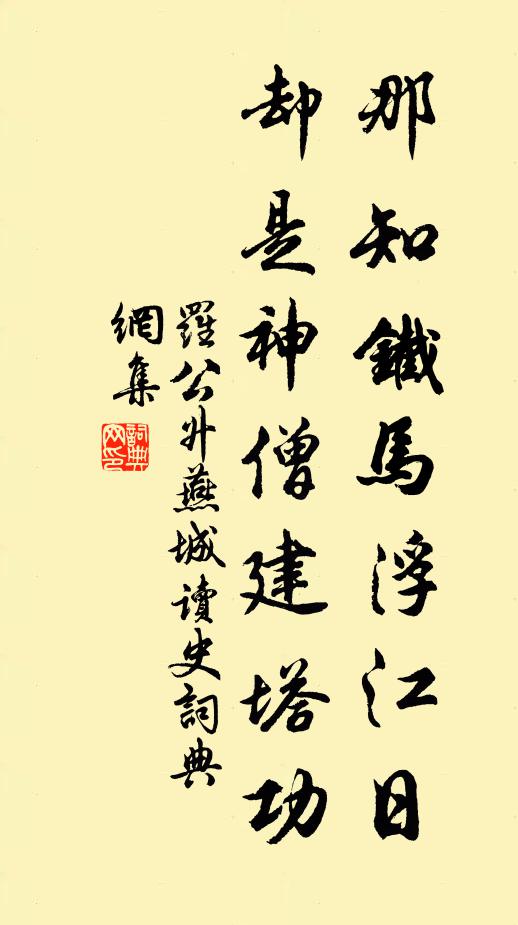 那知鐵馬浮江日
却是神僧建塔功
羅公升燕城讀史詞典
網集
詞典
网印